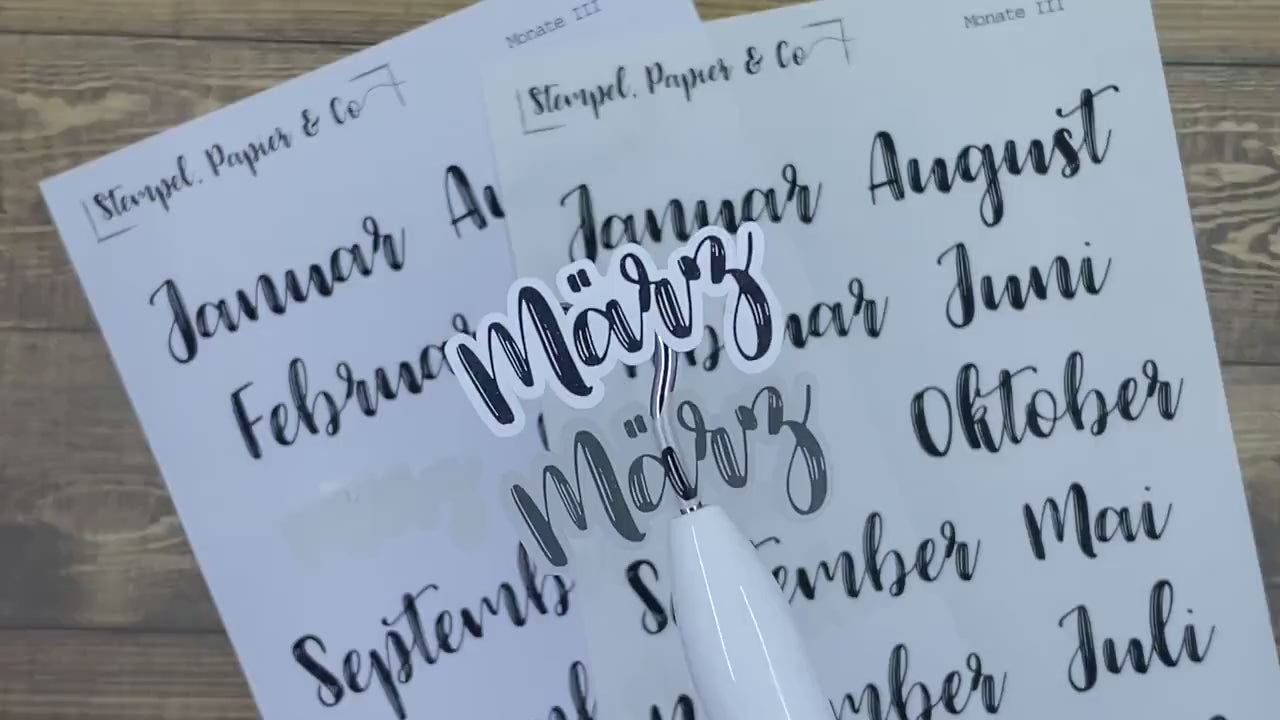 Monate III
Stempel. Papier & Co
Januar Au
Februa
Septemb
Monate III
Stempel. Papier & Co
Januar August
März
uar Juni
März
Oktober
S ember Mai
mber Juli